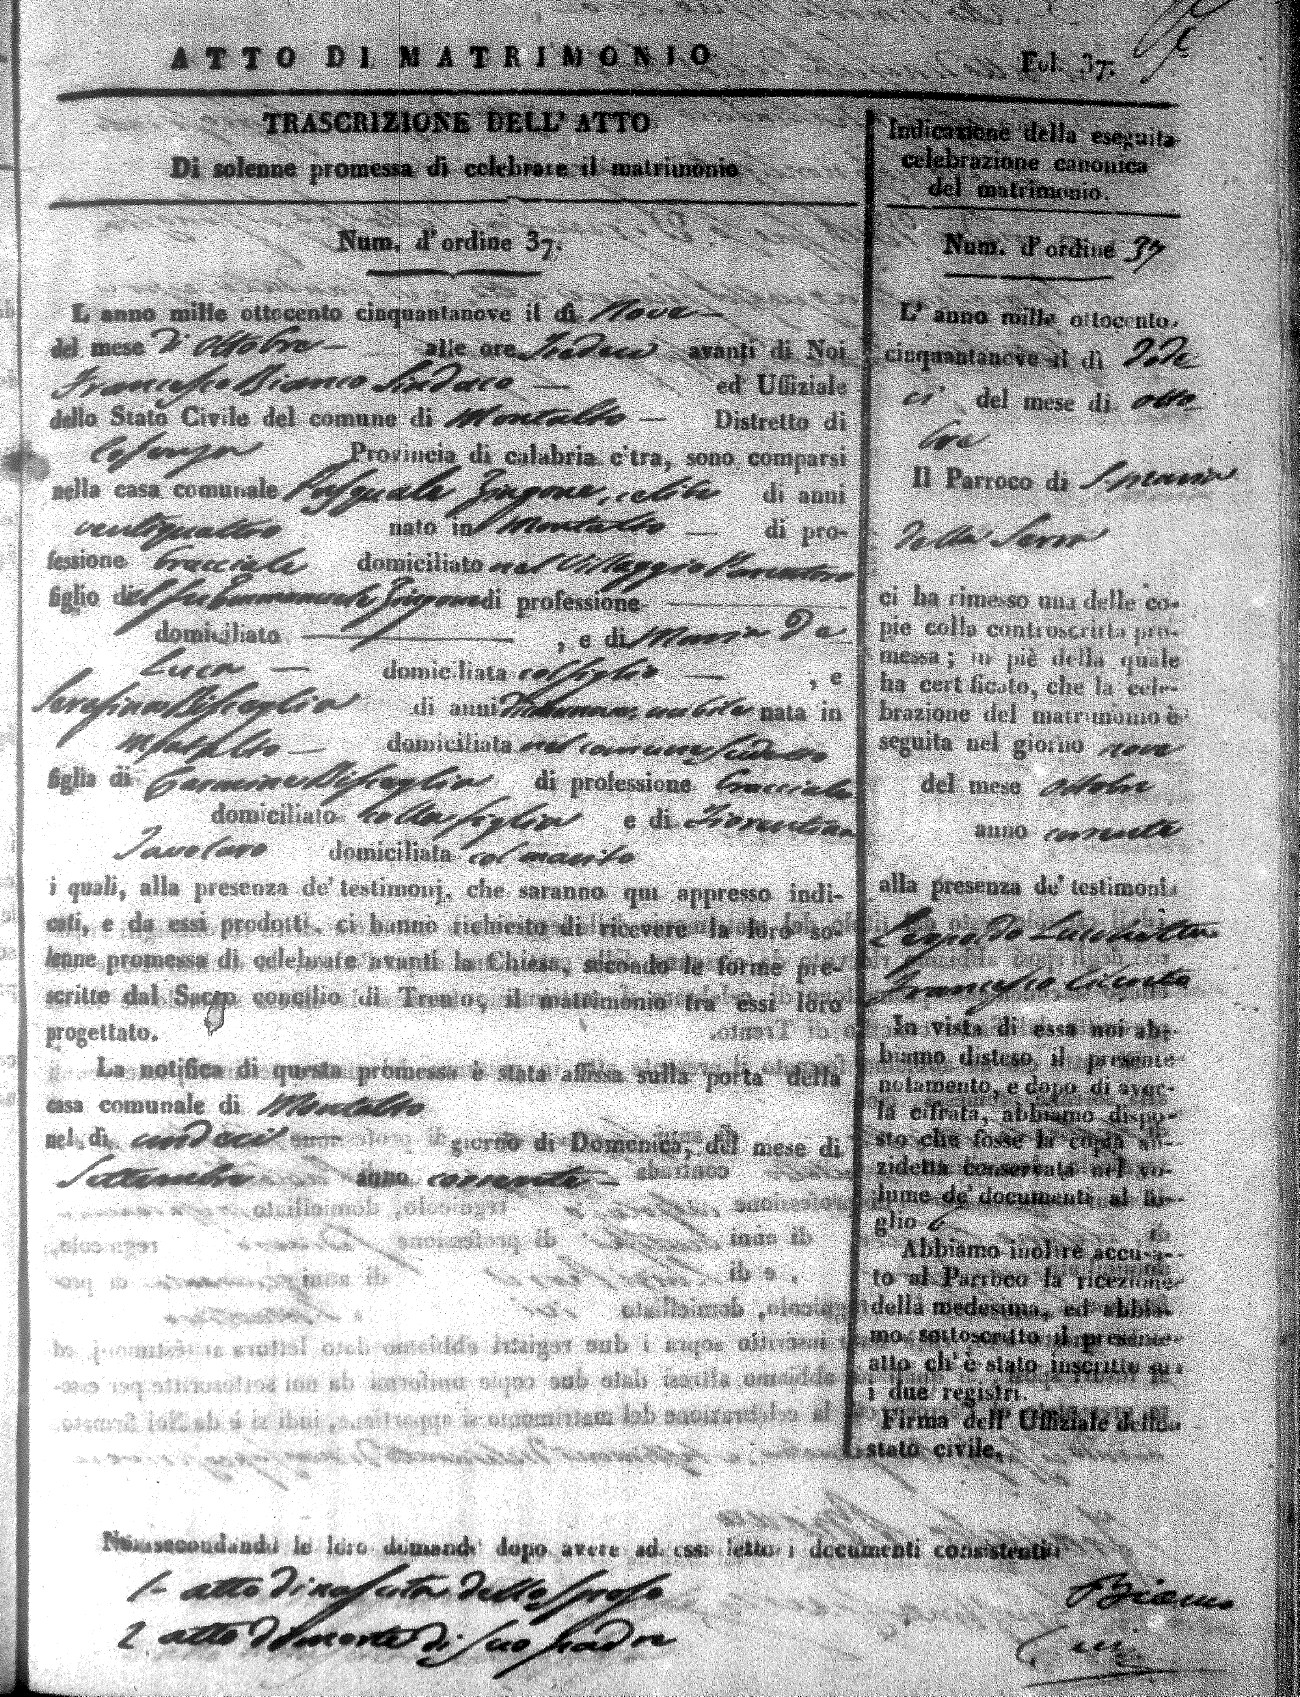 ATTO DI MATRIMONIO
Fol. 37.
TRASCRIZIONE DELL' ATTO
Di solenne promessa di celebrare il matrimonio
Num. d' ordine 37.
L' anno mille ottocento cinquantanove il dì Nove
del mese D' Ottobre alle ore Tredeci avanti di Noi
Francesco Bianco Sindaco ed Uffiziale
dello Stato Civile del comune di Montalto Distretto di
Cosenza Provincia di calabria c'tra, sono comparsi
nella casa comunale Pasquale Zingone, celibe di anni
ventiquattro nato in Montalto di pro-
fessione bracciale domiciliato nel Villaggio
figlio del fu Zingone di professione
domiciliato , e di Maria De
Luca domiciliata col figlio , e
Serafina Biscaglia di anni nubile nata in
Montalto domiciliata nel comune
figlia di Carmine Biscaglia di professione bracciale
domiciliato colla figlia e di Fiorentina
domiciliata col marito
i quali, alla presenza de' testimonj, che saranno qui appresso indi-
cati, e da essi prodotti, ci hanno richiesto di ricevere la loro so-
lenne promessa di celebrare avanti la Chiesa, secondo le forme pre-
scritte dal Sacro concilio di Trento, il matrimonio tra essi loro
progettato.
La notifica di questa promessa è stata affissa sulla porta della
casa comunale di Montalto
nel dì undeci giorno di Domenica, del mese di
Settembre anno corrente
Noi secondando le loro domande dopo avere ad essi letto i documenti consistenti
1- atto di nascita dello sposo
2 atto di morte di suo padre
Indicazione della eseguita
celebrazione canonica
del matrimonio.
Num. d' ordine 37
L' anno mille ottocento
cinquantanove il dì Dode
ci del mese di otto
bre
Il Parroco di
della Serra
ci ha rimesso una delle co-
pie colla controscritta pro-
messa; in piè della quale
ha certificato, che la cele-
brazione del matrimonio è
seguita nel giorno nove
del mese ottobre
anno corrente
alla presenza de' testimoni
Leopoldo Lucchetta
Francesco
In vista di essa noi ab-
biamo disteso, il presente
notamento, e dopo di aver-
la cifrata, abbiamo dispo-
sto che fosse la copia an-
zidetta conservata nel vo-
lume de' documenti al fo-
glio 6
Abbiamo inoltre accusa-
to al Parroco la ricezione
della medesima, ed abbia-
mo sottoscritto il presente
atto ch' è stato inscritto su
i due registri.
Firma dell' Uffiziale dello
stato civile,
F Bianco